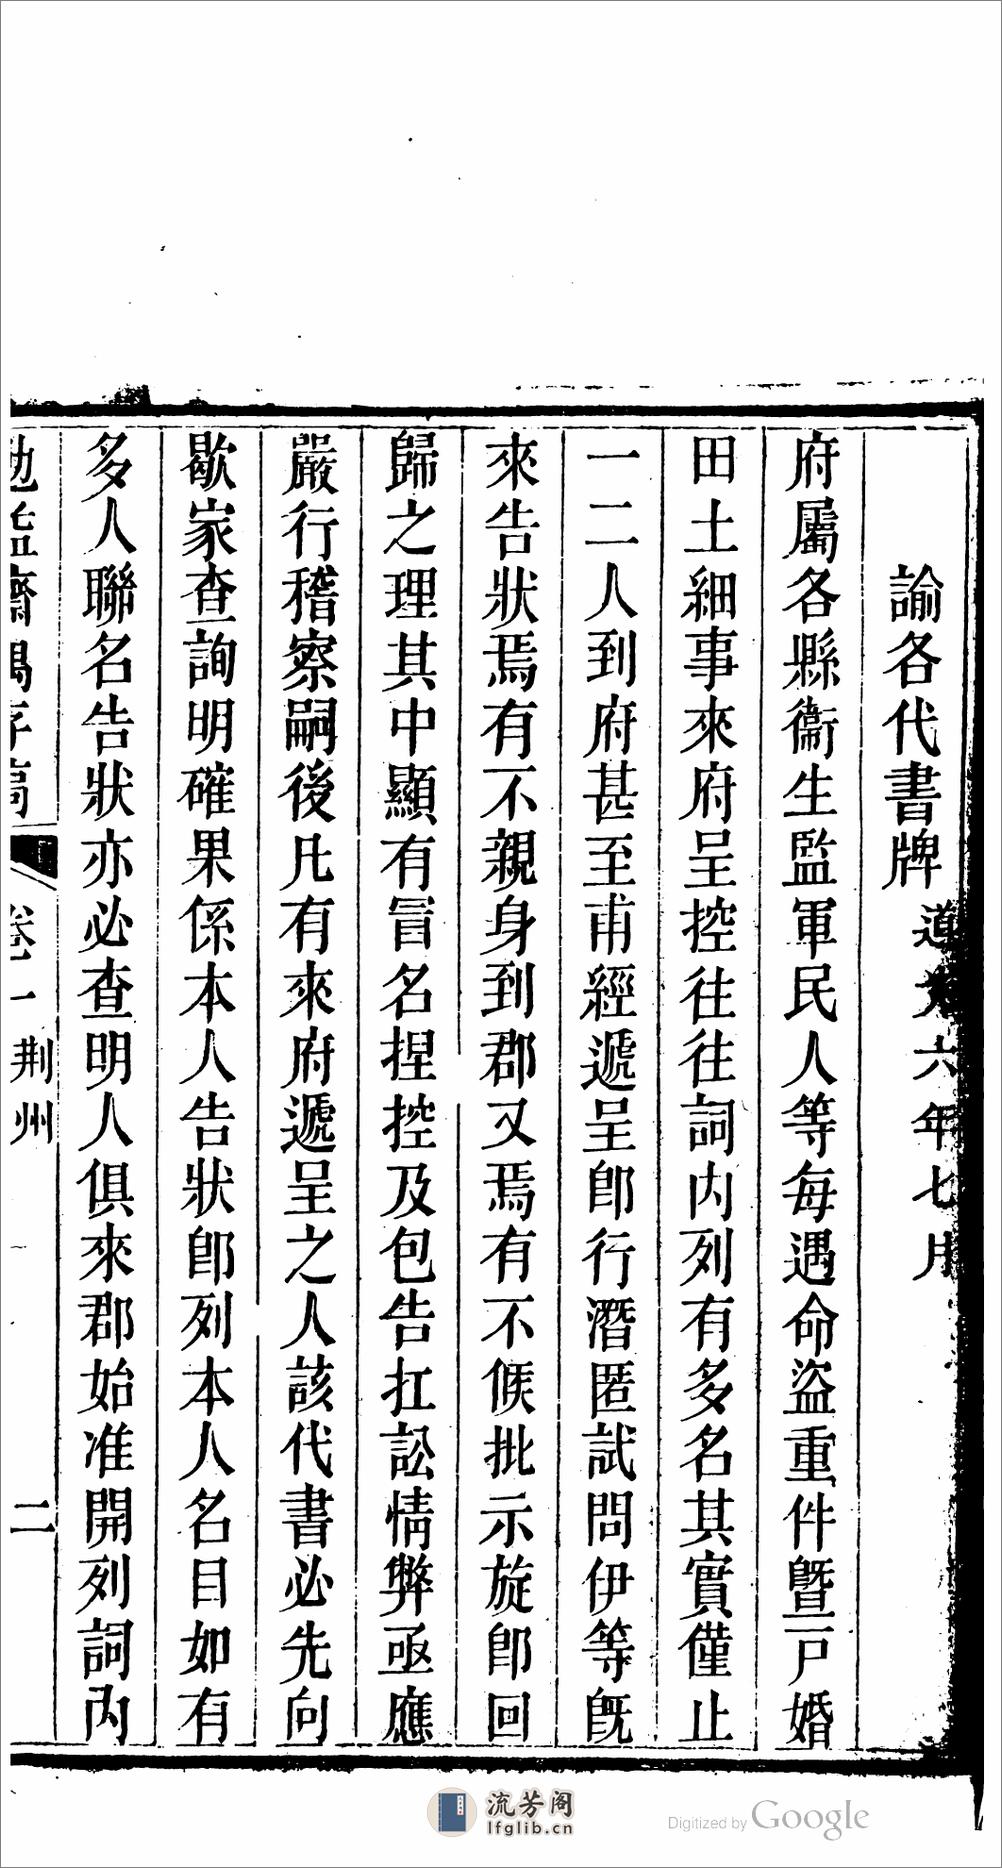 諭各代書牌 道光六年七月
府屬各縣衞生監軍民人等每遇命盜重件暨戸婚
田土細事來府呈控往往詞内列有多名其實僅止
一二人到府甚至甫經遞呈卽行潛匿試問伊等旣
來告狀焉有不親身到郡又焉有不候批示旋卽回
歸之理其中顯有冒名捏控及包告扛訟情弊亟應
嚴行稽察嗣後凡有來府遞呈之人該代書必先向
歇家查詢明確果係本人告狀卽列本人名目如有
多人聯名告狀亦必查明人俱來郡始准開列詞内
勉益齋偶存稿 卷一 荆州 二
流芳阁
lfglib.cn
Digitized by Google